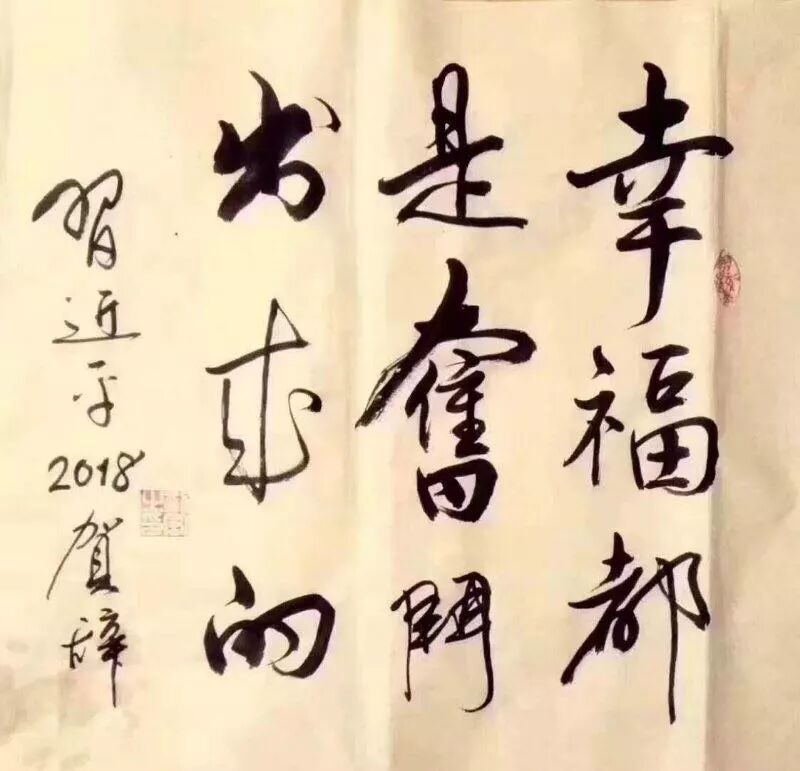 幸福都
是奮鬥
出來的
習近平2018賀辭